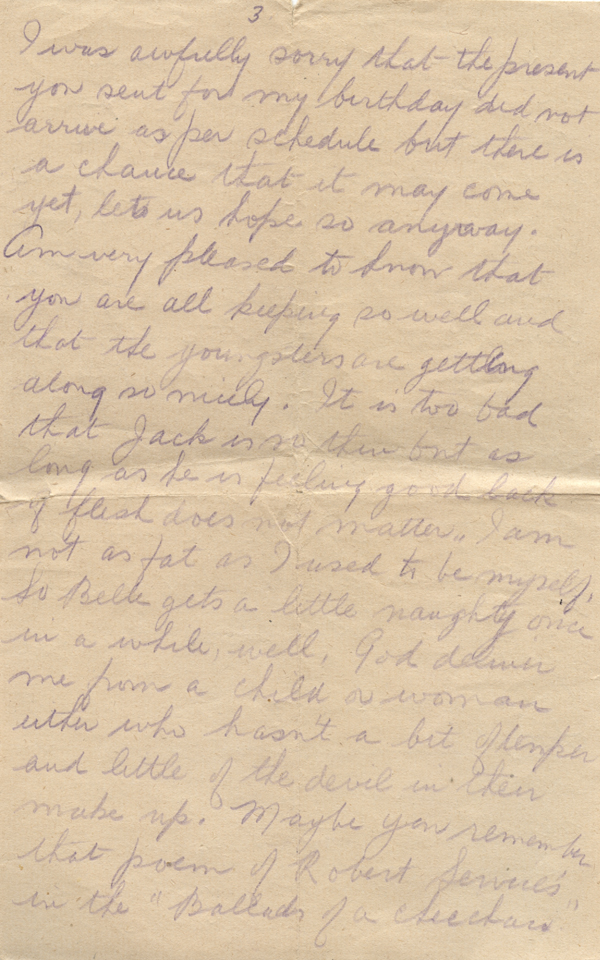 3
I was awfully sorry that the present
you sent for my birthday did not
arrive as per schedule but there is
a chance that it may come
yet, lets us hope so anyway.
Am very pleased to know that
you are all keeping so well and
that the youngsters are getting
along so nicely. It is too bad
that Jack is so thin but as
long as he is feeling good lack
of flesh does not matter. I am
not as fat as I used to be myself.
So Belle gets a little naughty once
in a while, well, God deliver
me from a child or woman
either who hasn't a bit of temper
and little of the devil in their
make up. Maybe you remember
that poem of Robert Service's
in the "Ballads of a Cheechaco"